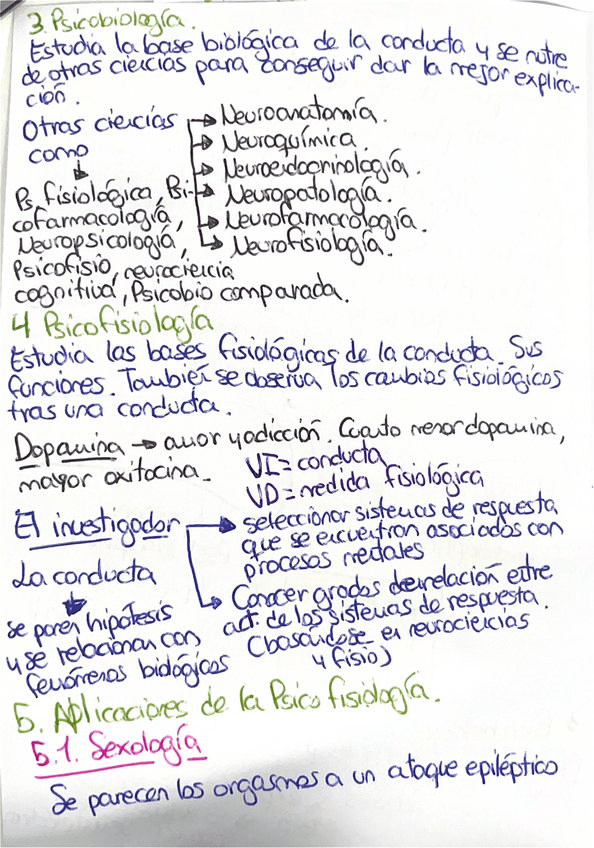 3. Psicobiología.
Estudia la base biológica de la conducta y se nutre
de otras ciencias para conseguir dar la mejor explica-
ción.
Otras ciencias
como
Neuroanatomía.
Neuroquímica.
Neuroendocrinología.
Neuropatología.
Neurofarmacología.
Neurofisiología.
Ps. fisiológica, Psi-
cofarmacología,
Neuropsicología,
Psicofisio, neurociencia
cognitiva, Psicobio comparada.
4 Psicofisiología
Estudia las bases fisiológicas de la conducta. Sus
funciones. También se observa los cambios fisiológicos
tras una conducta.
Dopamina → amor y adicción. Cuanto menor dopamina,
mayor oxitocina.
VI = conducta
VD = medida fisiológica
El investigador
seleccionar sistemas de respuesta
que se encuentran asociados con
procesos mentales
Conocer grados de relación entre
act. de los sistemas de respuesta.
(basándose en neurociencias
y fisio)
La conducta
se ponen hipótesis
y se relacionan con
fenómenos biológicos
5. Aplicaciones de la Psicofisiología.
5.1. Sexología
Se parecen los orgasmos a un ataque epiléptico